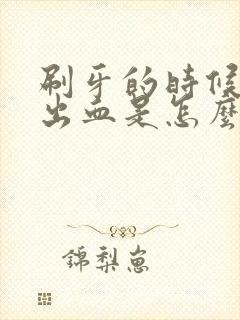 刷牙的時候
出血是怎麼
錦梨崽